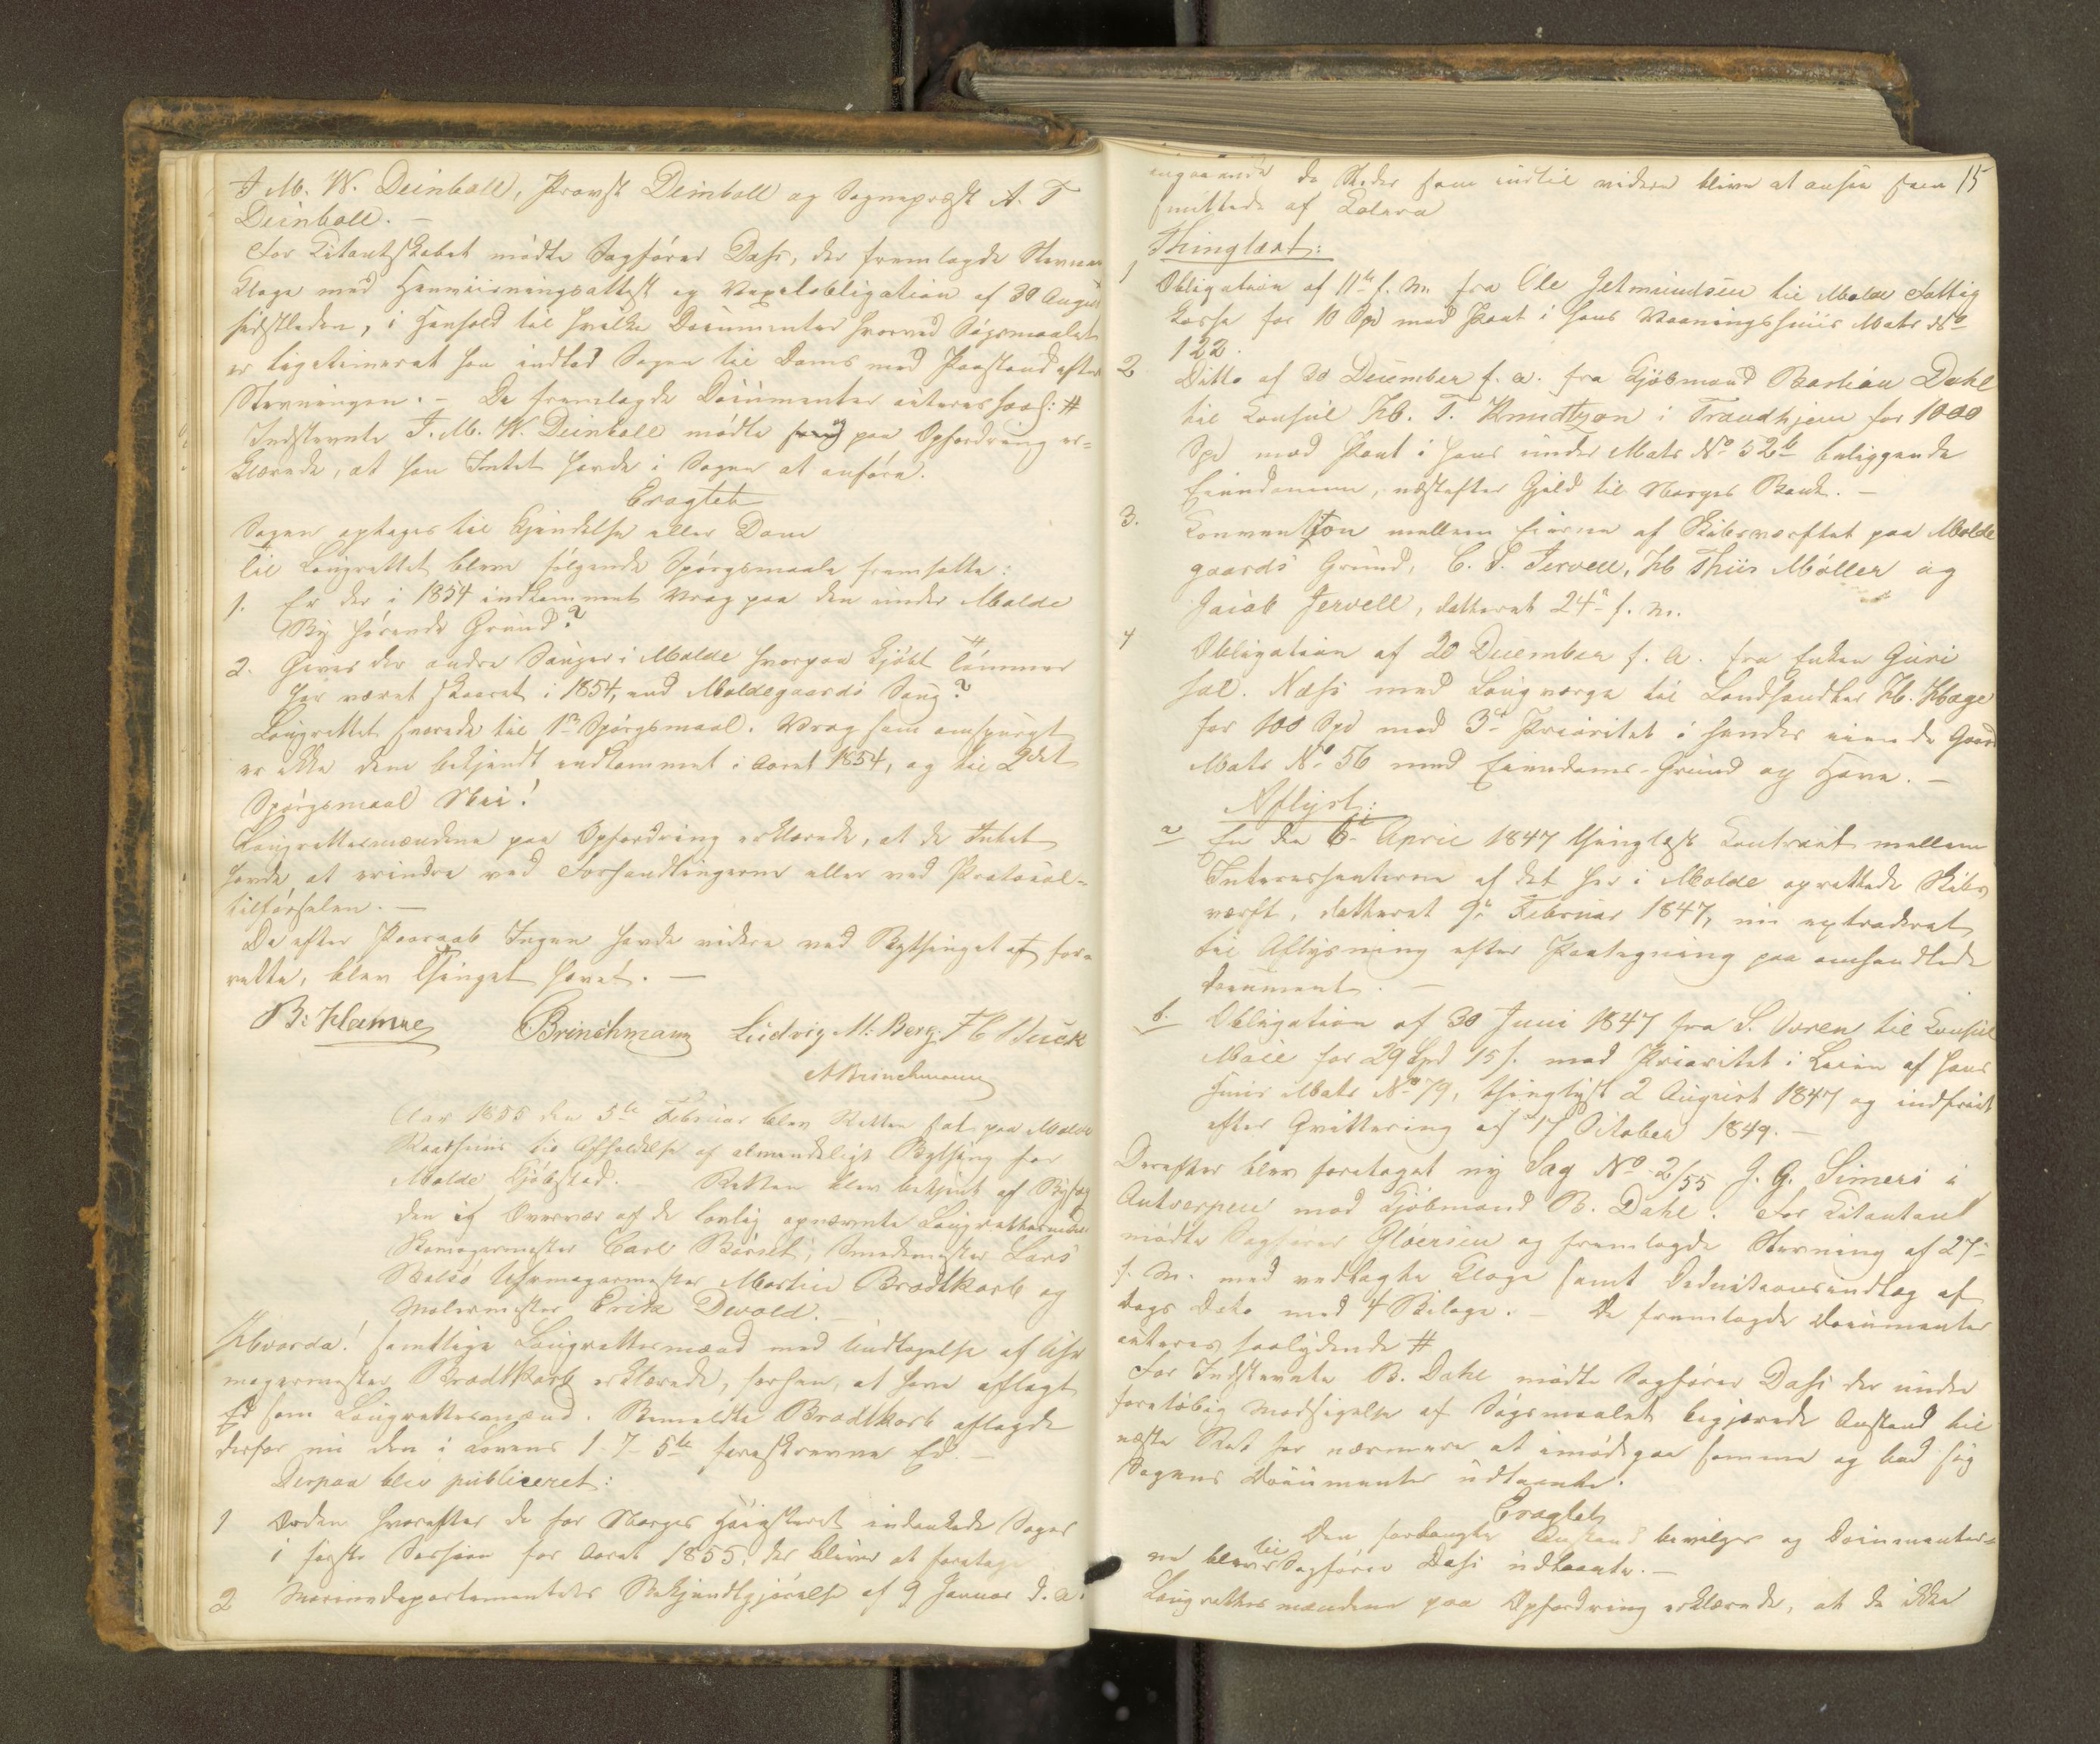 J. M. W. Deinboll, Provst Deinboll og Sognepræst A. T
Deinboll. —
For Citantskabet mødte Sagfører Dahs, der fremlagde Stevne
Klage med Henviisningsattest og Vexelobligation af 30 August
sidstleden, i Henhold til hvilke Documenter hvorved Søgsmaalet
er legitimeret han indlod Sagen til Doms med Paastand efter
Stevningen. – De fremlagde Documenter acteres saal: #
Indstevnte J. M. W. Deinboll mødte paa Opfordring er-
klærede, at han Intet havde i Sagen at anføre.
Eragtet
Sagen optages til Kjendelse eller Dom
Til Laugrettet bleve følgende Spørgsmaale fremsatte:
1. Er der i 1854 indkommet Vrag paa den under Molde
By hørende Grund?
2. Gives der andre Sauger i Molde hvorpaa kjøbt Tømmer
har været skaaret i 1854, end Moldegaards Saug?
Laugrettet svarede til 1ste Spørgsmaal. Vrag som omspurgt
er ikke dem bekjendt indkommet i Aaret 1854, og til 2det
Spørgsmaal Nei!
Laugrettesmændene paa Opfordring erklærede, at de Intet
havde at erindre ved Forhandlingerne eller ved Protocol-
tilførselen. —
Da efter Paaraab Ingen havde videre ved Bythinget at for-
rette, blev Thinget hævet. —
B: Hamre Brinchmann Ludvig M: Berg. F C Buck
A Brinchmann
Aar 1855 den 5te Februar blev Retten sat paa Molde
Raadhuus til Afholdelse af almindeligt Bything for
Molde Kjøbstad. Retten blev betjent af Byfog
den i Overvær af de lovlig opnævnte Laugrettesmænd
Skomagermester Carl Børset, Smedemester Lars
Bolsø Uhrmagermester Martin Brodtkorb og
Malermester Erik Devold.
Hvorda! samtlige Laugrettesmænd med Undtagelse af Uhr
magermester Brodtkorb erklærede, forhen, at have aflagt
Ed som Laugrettesmænd. Bemeldte Brodtkorb aflagde
derfor nu den i Lovens 1–7–5te foreskrevne Ed. —
Derpaa blev publiceret:
1 Orden hvorefter de for Norges Høiesteret indankede Sager
i første Session for Aaret 1855, der bliver at foretage
2 Marinedepartementets Bekjendtgjørelse af 9 Januar d. A.
15
angaaende de Steder som indtil videre blive at ansee som
smittede af Colera
Thinglæst:
1 Obligation af 11te f. M. fra Ole Gelmundsen til Molde Fattig
kasse for 10 Spd med Pant i hans Vaaningshuus Matr No
122.
2 Ditto af 30 December f. A. fra Kjøbmand Bastian Dahl
til Consul H. T. Knudtzon i Trondhjem for 1000
Spd med Pant i hans under Matr No 52b beliggende
Eiendomme, næstefter Gjeld til Norges Bank. —
3. Convention mellem Eierne af Skibsværftet paa Molde
gaards Grund, C. P. Jervell, H Thiis Møller og
Jacob Jervell, datteret 24de f. M.
4 Obligation af 20 December f. A. fra Enken Guri
sal. Næss med Laugværge til Landhandler H. Hage
for 100 Spd med 3de Prioritet i hendes eiende Gaard
Matr No 56 med Eiendoms-Grund og Have. —
Aflyst:
a En den 6te April 1847 thinglæst Contract mellem
Interessenterne af det her i Molde oprettede Skibs
værft, datteret 9de Februar 1847, nu extraderet
til Aflysning efter Paategning paa omhandlede
Document. —
b. Obligation af 30 Juni 1847 fra S. Voren til Consul
Moe for 29 Spd 15 s. med Prioritet i Leien af hans
Huus Matr No 79, thinglyst 2 August 1847 og indfriet
efter Qvittering af 17 October 1849. —
Derefter blev foretaget ny Sag No 2/55 J. G. Simers i
Antwerpen mod Kjøbmand B. Dahl. For Citanten
mødte Sagfører Gløersen og fremlagde Stevning af 27de
f. M. med vedlagte Klage samt Deductionsindlæg af
Dags Dato med 4 Bilage. – De fremlagde Documenter
acteres saalydende #
For Indstevnte B. Dahl mødte Sagfører Dahs der under
foreløbig Modsigelse af Søgsmaalet begjærede Anstand til
næste Ret for nærmere at imødegaa samme og bad sig
Sagens Documenter udlaante.
Eragtet
Den forlangte Anstand bevilges og Documenter-
ne bliver Sagfører Dahs udlaante. —
Laugrettesmændene paa Opfordring erklærede, at de ikke